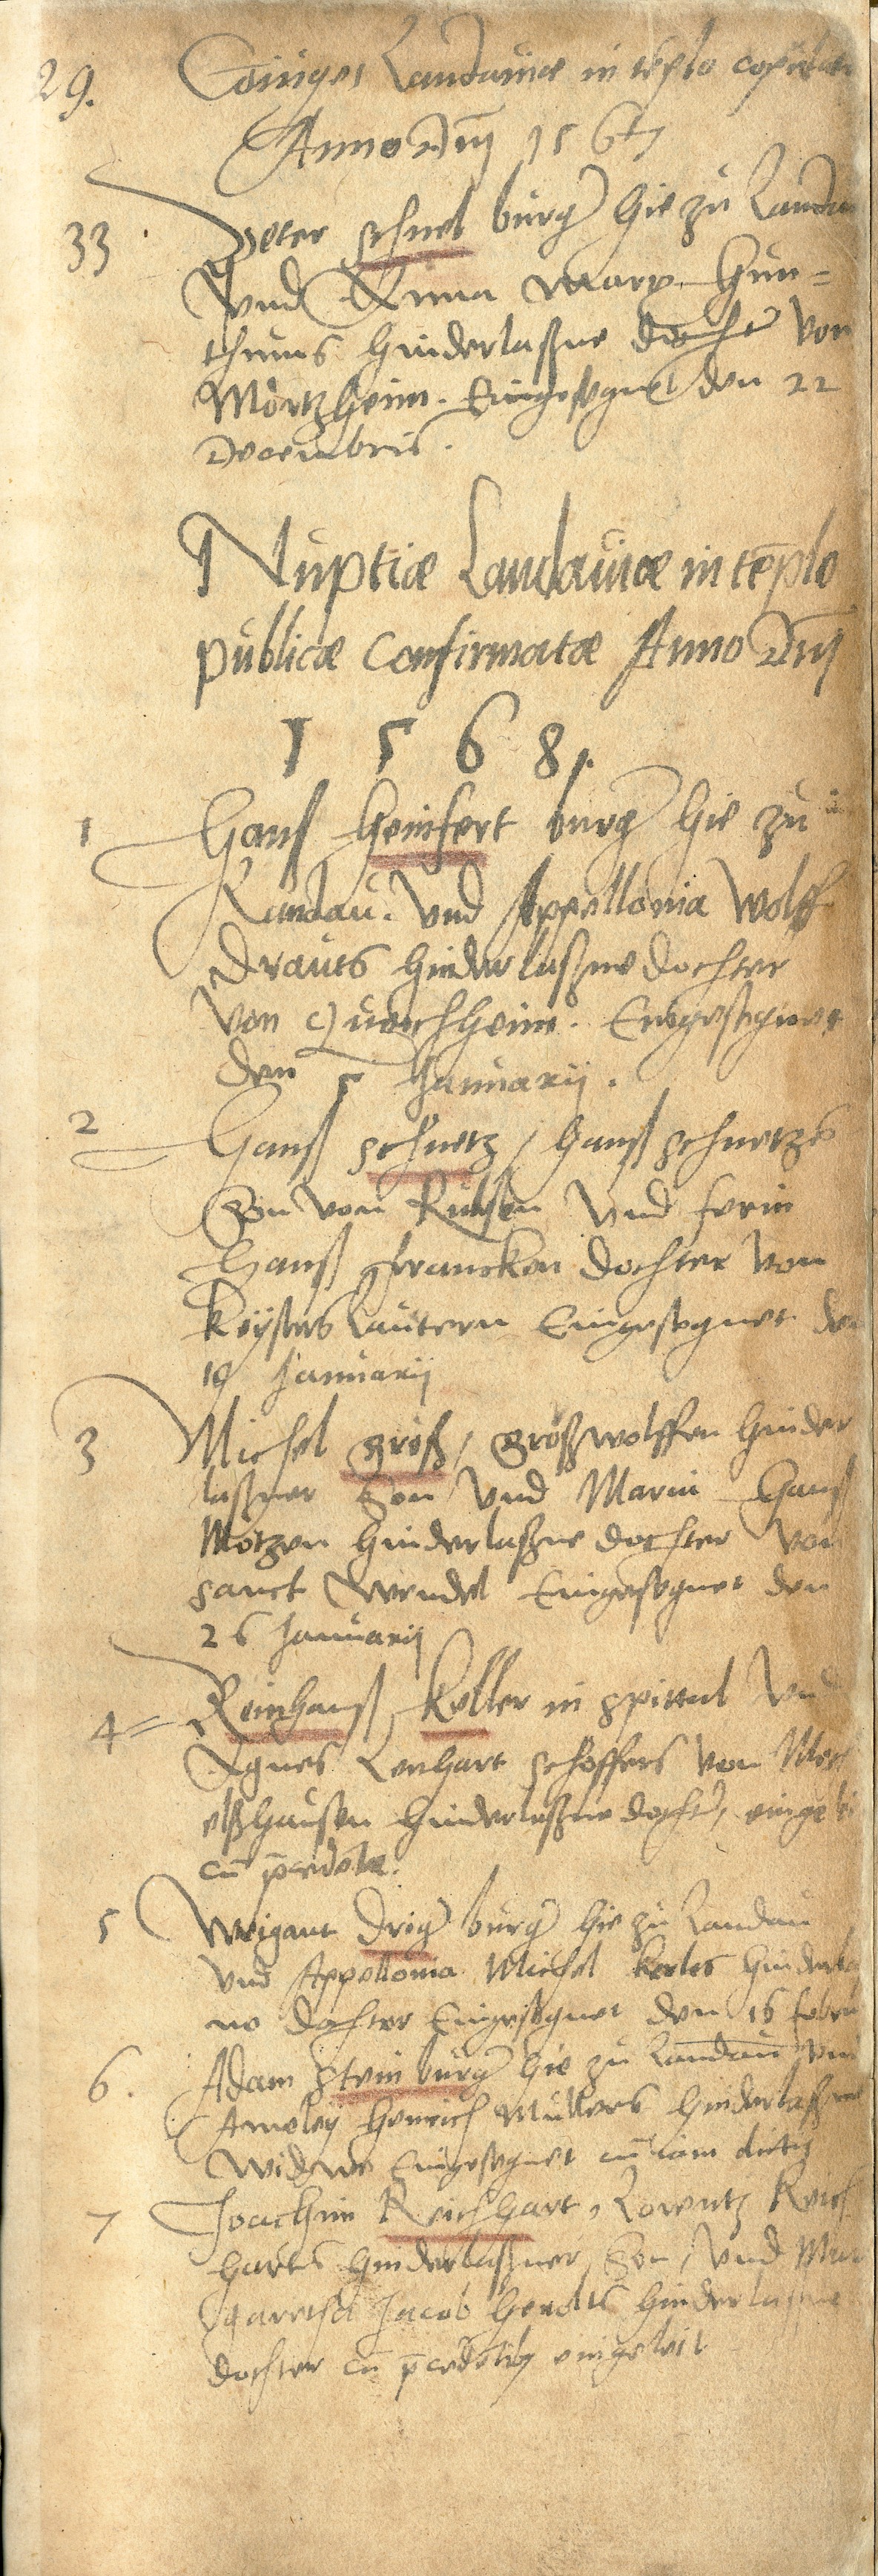 29. Coniuges Landauiæ in tēplo copulati
Anno Dnj 1567
33. Peter schnel burger hie zu Landau
Vnd Anna Marx Hun=
thums hinderlaßne dochter von
Mörtzheim. Eingesegnet den 22
Decembris.
Nuptiæ Landauiæ in tēplo
publicæ confirmatæ Anno Dnj
1568.
1 Hans Heinfert burger hie zu
Landau. Vnd Appellonia Wolff
Drauts hinderlaßne dochter
von Queichheim. Eingesegnet
den 5 Januarij.
2 Hanß schnetz / Hanß schnetzs
Son von und
Hanß Francken dochter von
Keysers Lautern Eingesegnet den
19 Januarij
3 Michel groß / großwolffen hinder
laßner Son Vnd Marin Hanß
Motzen hinderlaßne dochter von
sanct Wendel Eingesegnet den
26 Januarij
4 Reinhanß Keller in spittal Vnd
Agnes Lenhart schoffers von
elßhausen hinderlaßne dochter,
cū
5 Weigant burger hie zu Landau
Vnd Appollonia Michel Kerles hinderlaß
ne dochter Eingesegnet den 16 febru
6. Adam Stein burger hie zu Landau Vnd
Henrich Müllers hinderlaßne
Widwe Eingesegnet
7 Joachim Reichhart, Lorentz Reich
harts hinderlaßner Son, Vnd Mar
garetha Jacob hinderlaßne
dochter cū